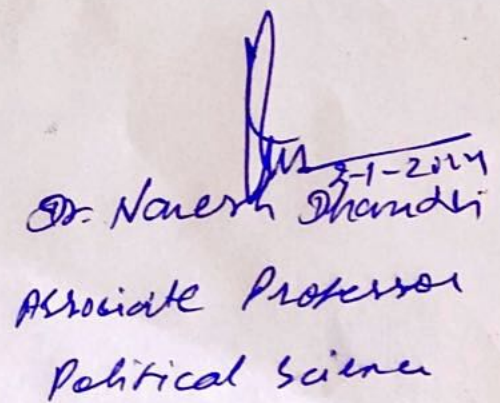 3-1-2024
Dr. Naresh Dhandi
Associate Professor
Political Science